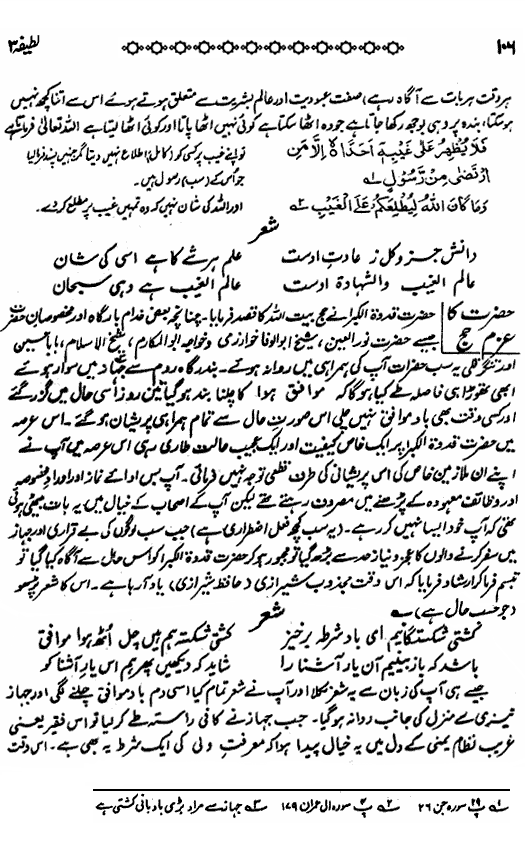 ۱۰۶ لطیفہ ۳
ہر وقت ہر بات سے آگاہ رہے) صفت عبودیت اور عالم بشریت سے متعلق ہوتے ہوئے اس سے اتنا کچھ نہیں
ہوسکتا، بندہ پر وہی بوجھ رکھا جاتا ہے جو وہ اٹھا سکتا ہے کوئی نہیں اٹھا پاتا اور کوئی اٹھا لیتا ہے اللہ تعالیٰ فرماتا ہے
فَلَا يُظْهِرُ عَلٰى غَيْبِهٖٓ اَحَدًا ۝ اِلَّا مَنِ تو اپنے غیب پر کسی کو (کامل) اطلاع نہیں دیتا مگر جنہیں پسند فرمالیا
ارْتَضٰى مِنْ رَّسُوْلٍ ؎۱ جو اس کے (سب) رسول ہیں۔
وَمَا كَانَ اللّٰهُ لِيُطْلِعَكُمْ عَلَى الْغَيْبِ ؎۲ اور اللہ کی شان نہیں کہ وہ تمہیں غیب پر مطلع کردے۔
شعر
دانش جز و کل ز عادت اوست علم ہر شے کا ہے اسی کی شان
عالم الغیب والشہادۃ اوست عالم الغیب ہے وہی سبحان
حضرت کا حضرت قدوۃ الکبرا نے حج بیت اللہ کا قصد فرمایا۔ چنانچہ بعض خدام بارگاہ اور مخصوصان حضرت
عزم حج جیسے حضرت نور العین، شیخ ابوالوفا خوارزی و خواجہ ابوالمکارم، شیخ الاسلام، بابا حسین
اور تنگر قلی یہ سب حضرات آپ کی ہمراہی میں روانہ ہوئے۔ بندرگاہ روم سے جہاز میں سوار ہوئے
ابھی تھوڑا ہی فاصلہ طے کیا ہوگا کہ موافق ہوا کا چلنا بند ہوگیا تین روز اسی حال میں گزر گئے
اور کسی وقت بھی باد موافق نہیں چلی اس صورت حال سے تمام ہمراہی پریشان ہوگئے۔ اس عرصہ
میں حضرت قدوۃ الکبرا پر ایک خاص کیفیت اور ایک عجیب حالت طاری رہی اس عرصہ میں آپ نے
اپنے ان ملازمین خاص کی اس پریشانی کی طرف قطعی توجہ نہیں فرمائی۔ آپ بس ادائے نماز اور اوراد مخصوصہ
اور وظائف معہودہ کے پڑھنے میں مصروف رہتے تھے لیکن آپ کے اصحاب کے خیال میں یہ بات بیٹھی ہوئی
تھی کہ آپ خود ایسا نہیں کر رہے۔ (یہ سب کچھ فعل اضطراری ہے) جب سب لوگوں کی بے قراری اور جہاز
میں سفر کرنے والوں کا عجز و نیاز حد سے بڑھ گیا تو مجبور ہو کر حضرت قدوۃ الکبرا کو اس حال سے آگاہ کیا گیا تو
تبسم فرما کر ارشاد فرمایا کہ اس وقت مجذوب شیرازی (حافظ شیرازی) یاد آرہا ہے۔ اس کا شعر پڑھو
(جو حسب حال ہے) ؎۳
شعر
کشتی شکستگانیم ای باد شرطہ برخیز کشتی شکستہ ہم ہیں چل اُٹھ ہوا موافق
باشد کہ باز بینیم آن یار آشنا را شاید کہ دیکھیں پھر ہم اس یار آشنا کو
جیسے ہی آپ کی زبان سے یہ شعر نکلا اور آپ نے شعر تمام کیا اسی دم باد موافق چلنے لگی اور جہاز
تیزی سے منزل کی جانب روانہ ہوگیا۔ جب جہاز نے کافی راستہ طے کرلیا تو اس فقیر یعنی
غریب نظام یمنی کے دل میں یہ خیال پیدا ہوا کہ معرفت ولی کی ایک شرط یہ بھی ہے۔ اس وقت
؎۱ پ ۲۹ سورہ جن ۲۶ ؎۲ پ ۴ سورہ آل عمران ۱۷۹ ؎۳ جہاز سے مراد بڑی بادبانی کشتی ہے